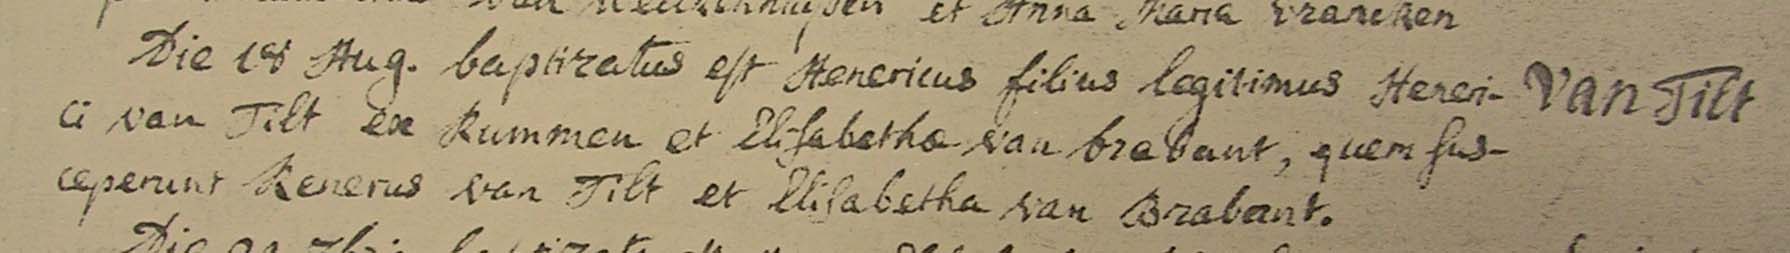 van et Anna Maria Vrancken
Die 18 Aug. baptizatus est Henericus filius legitimus Heneri- van Tilt
ci van Tilt ex Rummen et Elisabetha van brabant, quem sus-
ceperunt Renerus van Tilt et Elisabetha van Brabant.
Die